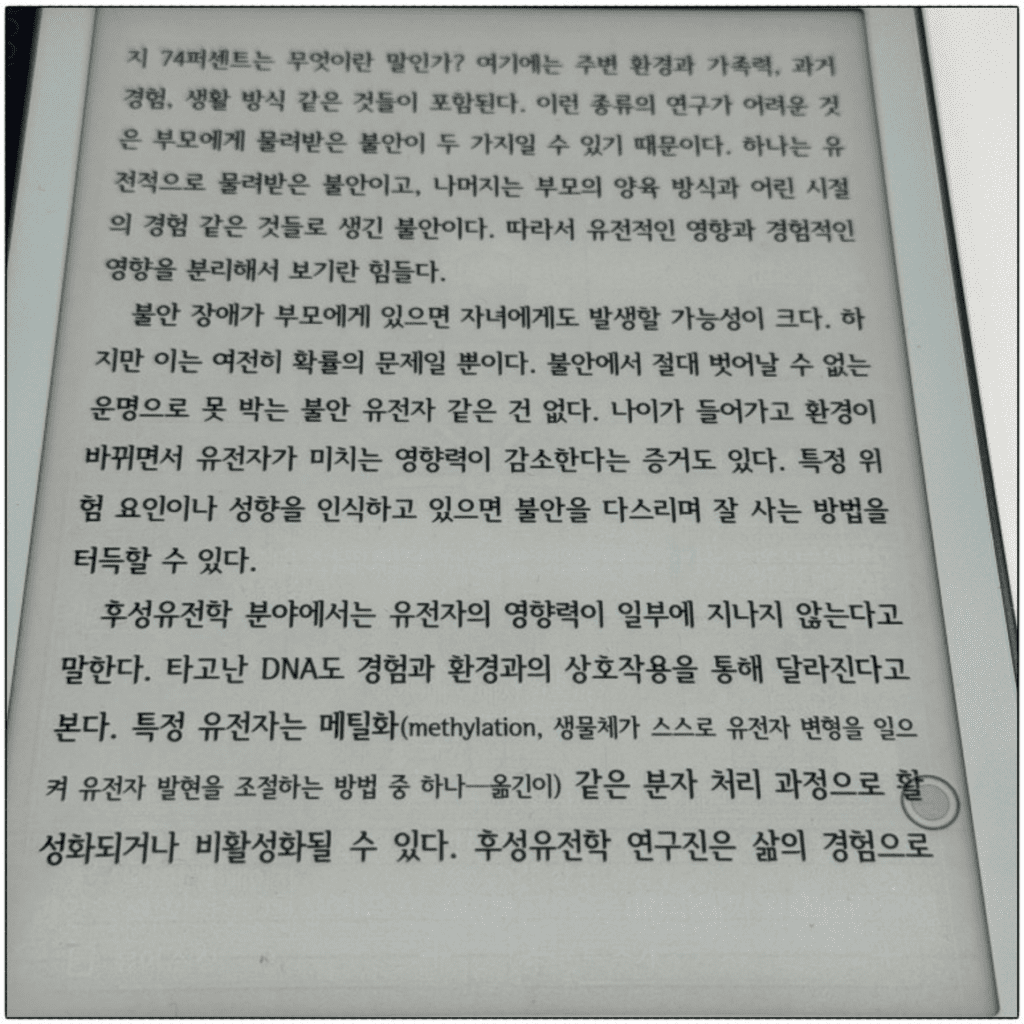 지 74퍼센트는 무엇이란 말인가? 여기에는 주변 환경과 가족력, 과거
경험, 생활 방식 같은 것들이 포함된다. 이런 종류의 연구가 어려운 것
은 부모에게 물려받은 불안이 두 가지일 수 있기 때문이다. 하나는 유
전적으로 물려받은 불안이고, 나머지는 부모의 양육 방식과 어린 시절
의 경험 같은 것들로 생긴 불안이다. 따라서 유전적인 영향과 경험적인
영향을 분리해서 보기란 힘들다.
불안 장애가 부모에게 있으면 자녀에게도 발생할 가능성이 크다. 하
지만 이는 여전히 확률의 문제일 뿐이다. 불안에서 절대 벗어날 수 없는
운명으로 못 박는 불안 유전자 같은 건 없다. 나이가 들어가고 환경이
바뀌면서 유전자가 미치는 영향력이 감소한다는 증거도 있다. 특정 위
험 요인이나 성향을 인식하고 있으면 불안을 다스리며 잘 사는 방법을
터득할 수 있다.
후성유전학 분야에서는 유전자의 영향력이 일부에 지나지 않는다고
말한다. 타고난 DNA도 경험과 환경과의 상호작용을 통해 달라진다고
본다. 특정 유전자는 메틸화(methylation, 생물체가 스스로 유전자 변형을 일으
켜 유전자 발현을 조절하는 방법 중 하나―옮긴이) 같은 분자 처리 과정으로 활
성화되거나 비활성화될 수 있다. 후성유전학 연구진은 삶의 경험으로